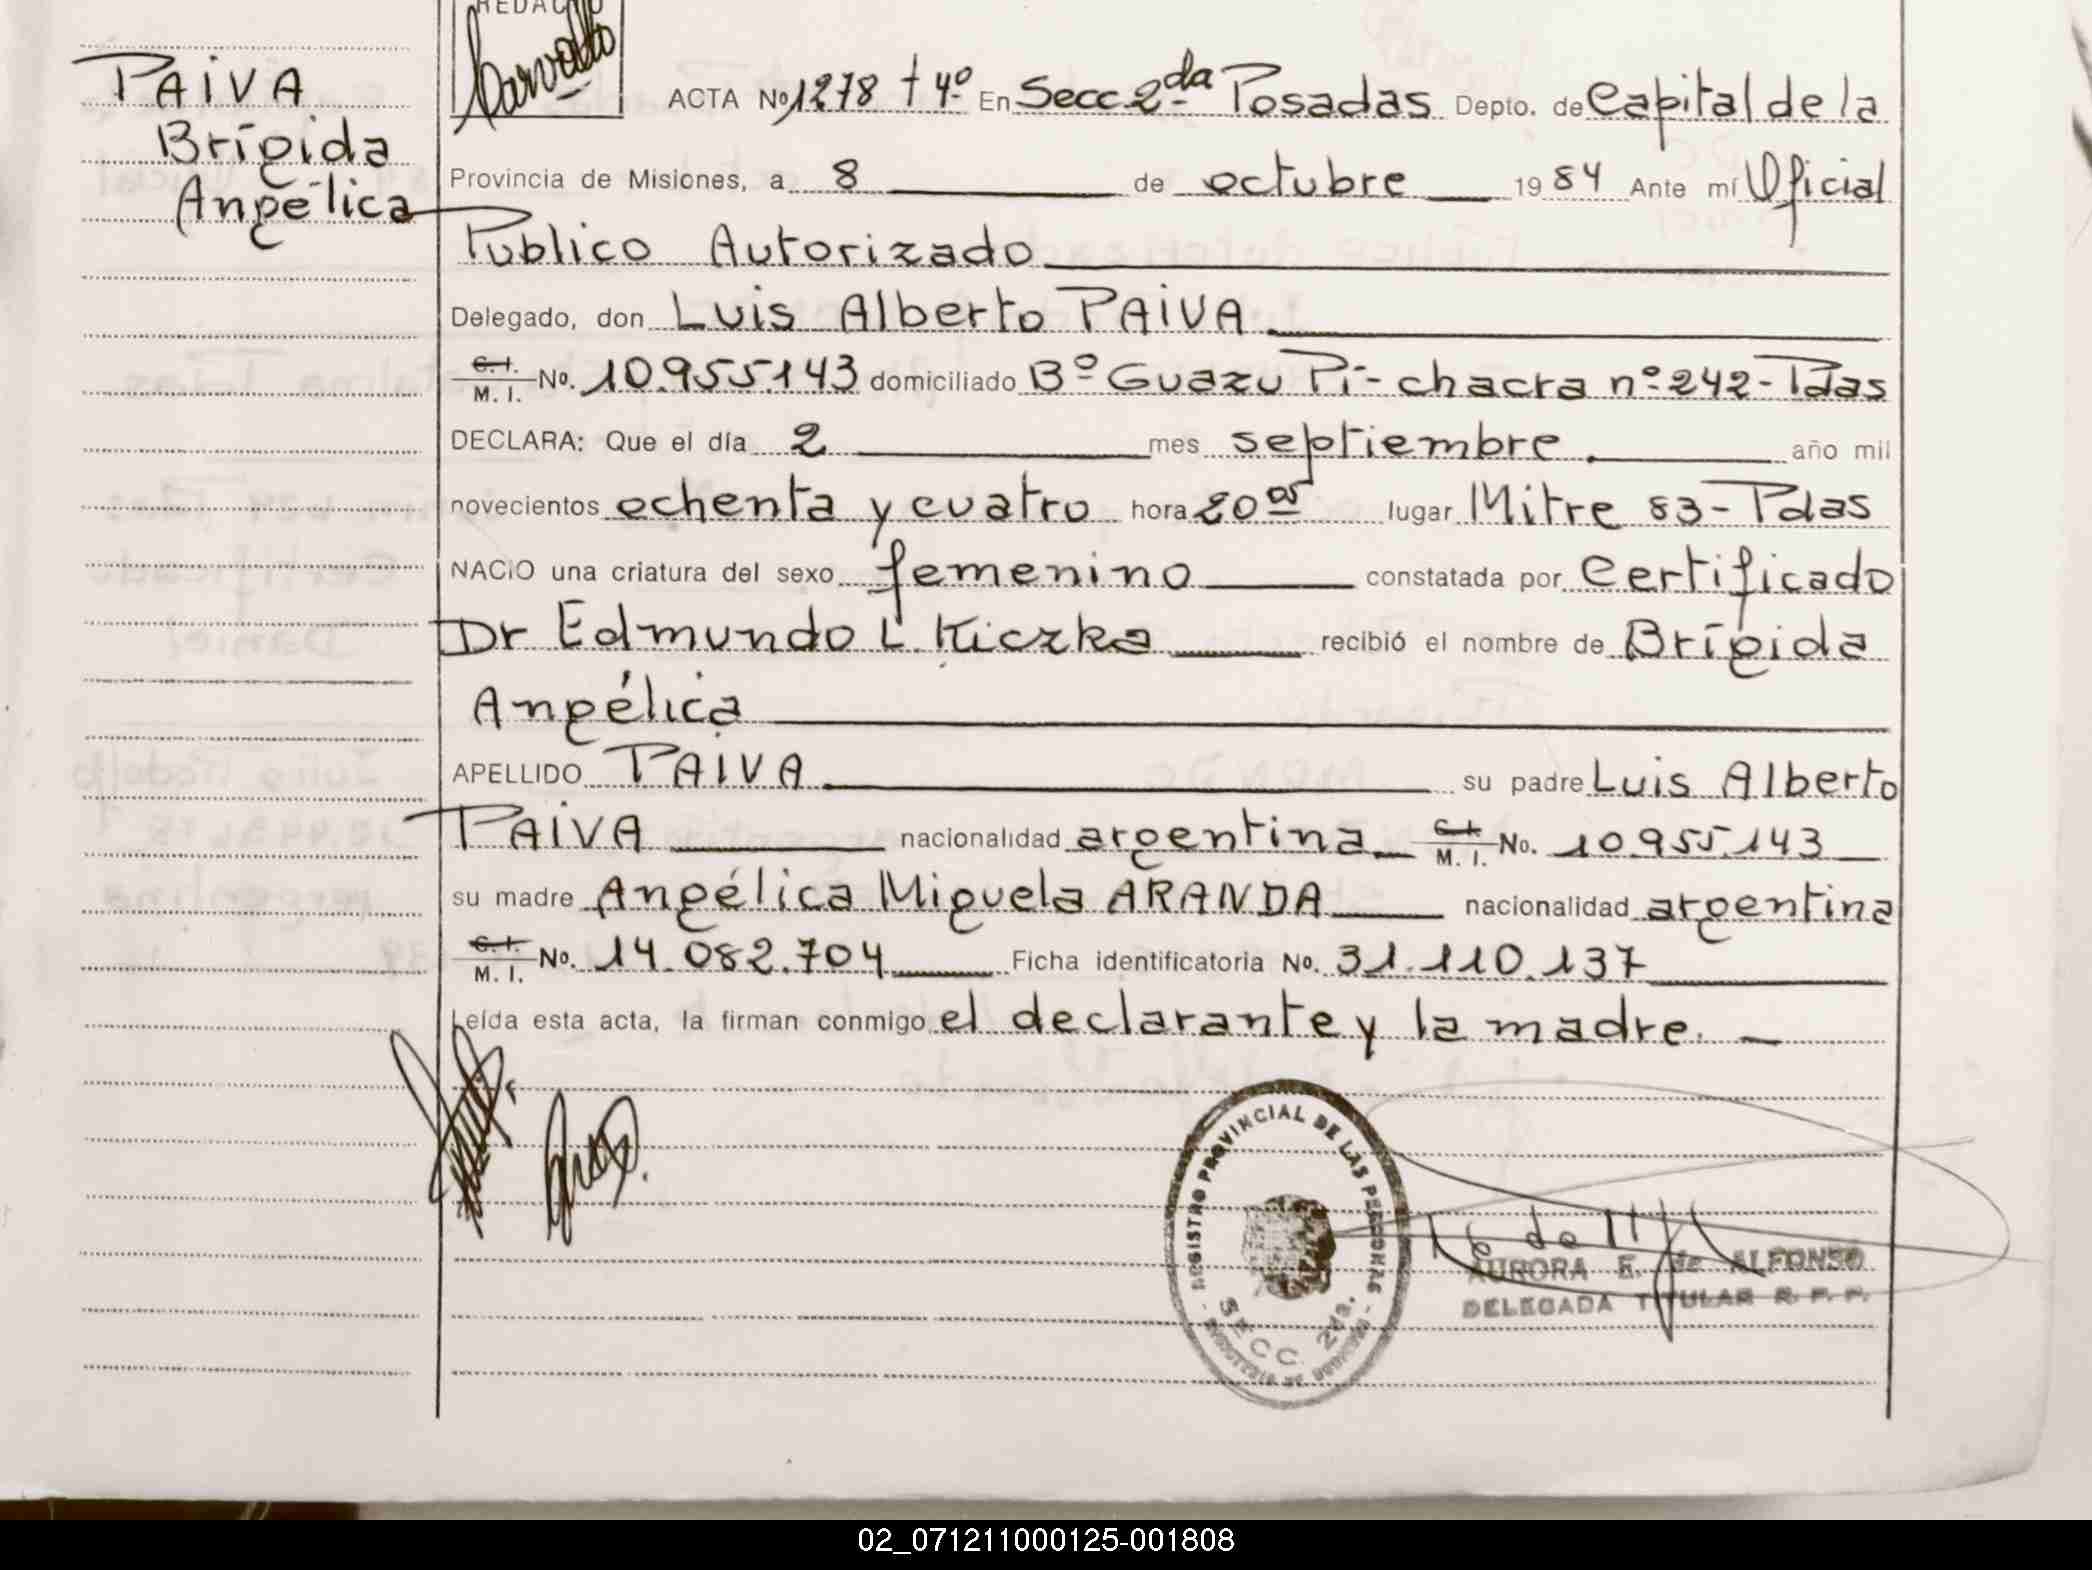 REDACTO
Carvallo
PAIVA
Brígida
Angélica
ACTA Nº 1278 t 4º En Secc 2da Posadas Depto. de Capital de la
Provincia de Misiones, a 8 de octubre 1984 Ante mí Oficial
Publico Autorizado
Delegado, don Luis Alberto PAIVA
C.I. M.I. No. 10.955.143 domiciliado Bº Guazu Pí - chacra nº 242 - Pdas
DECLARA: Que el día 2 mes septiembre año mil
novecientos ochenta y cuatro hora 20 os lugar Mitre 83 - Pdas
NACIO una criatura del sexo femenino constatada por Certificado
Dr Edmundo L. Kiczka recibió el nombre de Brígida
Angélica
APELLIDO PAIVA su padre Luis Alberto
PAIVA nacionalidad argentina C.I. M.I. No. 10.955.143
su madre Angélica Miguela ARANDA nacionalidad argentina
C.I. M.I. No. 14.082.704 Ficha identificatoria No. 31.110.137
Leída esta acta, la firman conmigo el declarante y la madre. -
REGISTRO PROVINCIAL DE LAS PERSONAS
SECC. 2da.
AURORA E. de ALFONSO
DELEGADA TITULAR R. P. P.
02_071211000125-001808